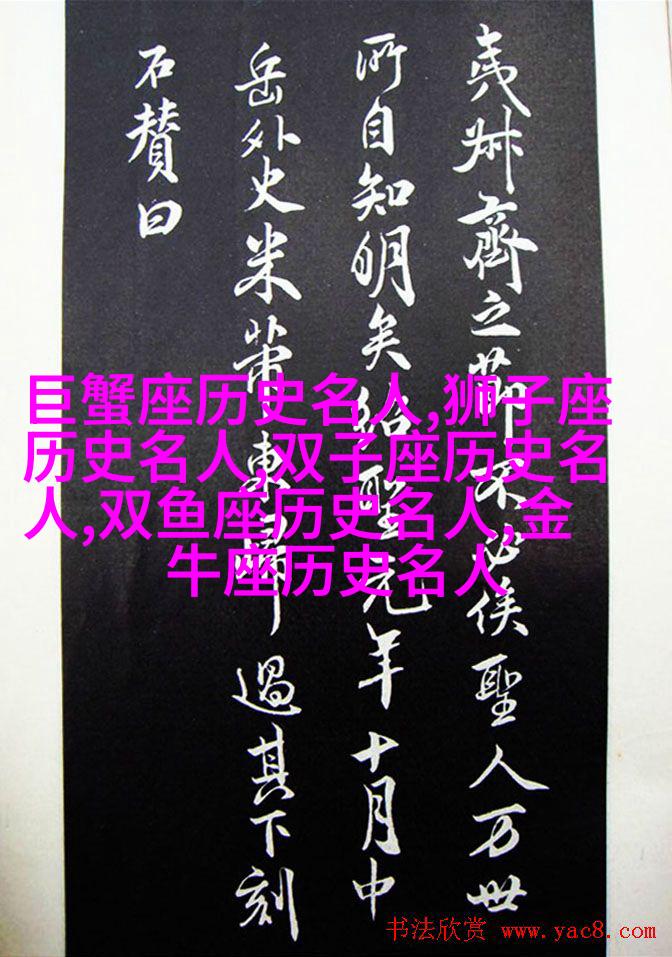 夷叔齊之節不必俟聖人万世
所自知明矣紹聖元年十月中
岳外史米芾東歸過其下刻
石賛曰
巨蟹座历史名人,狮子座
历史名人,双子座历史名
人,双鱼座历史名人,金
牛座历史名人
书法欣赏 www.yac8.com